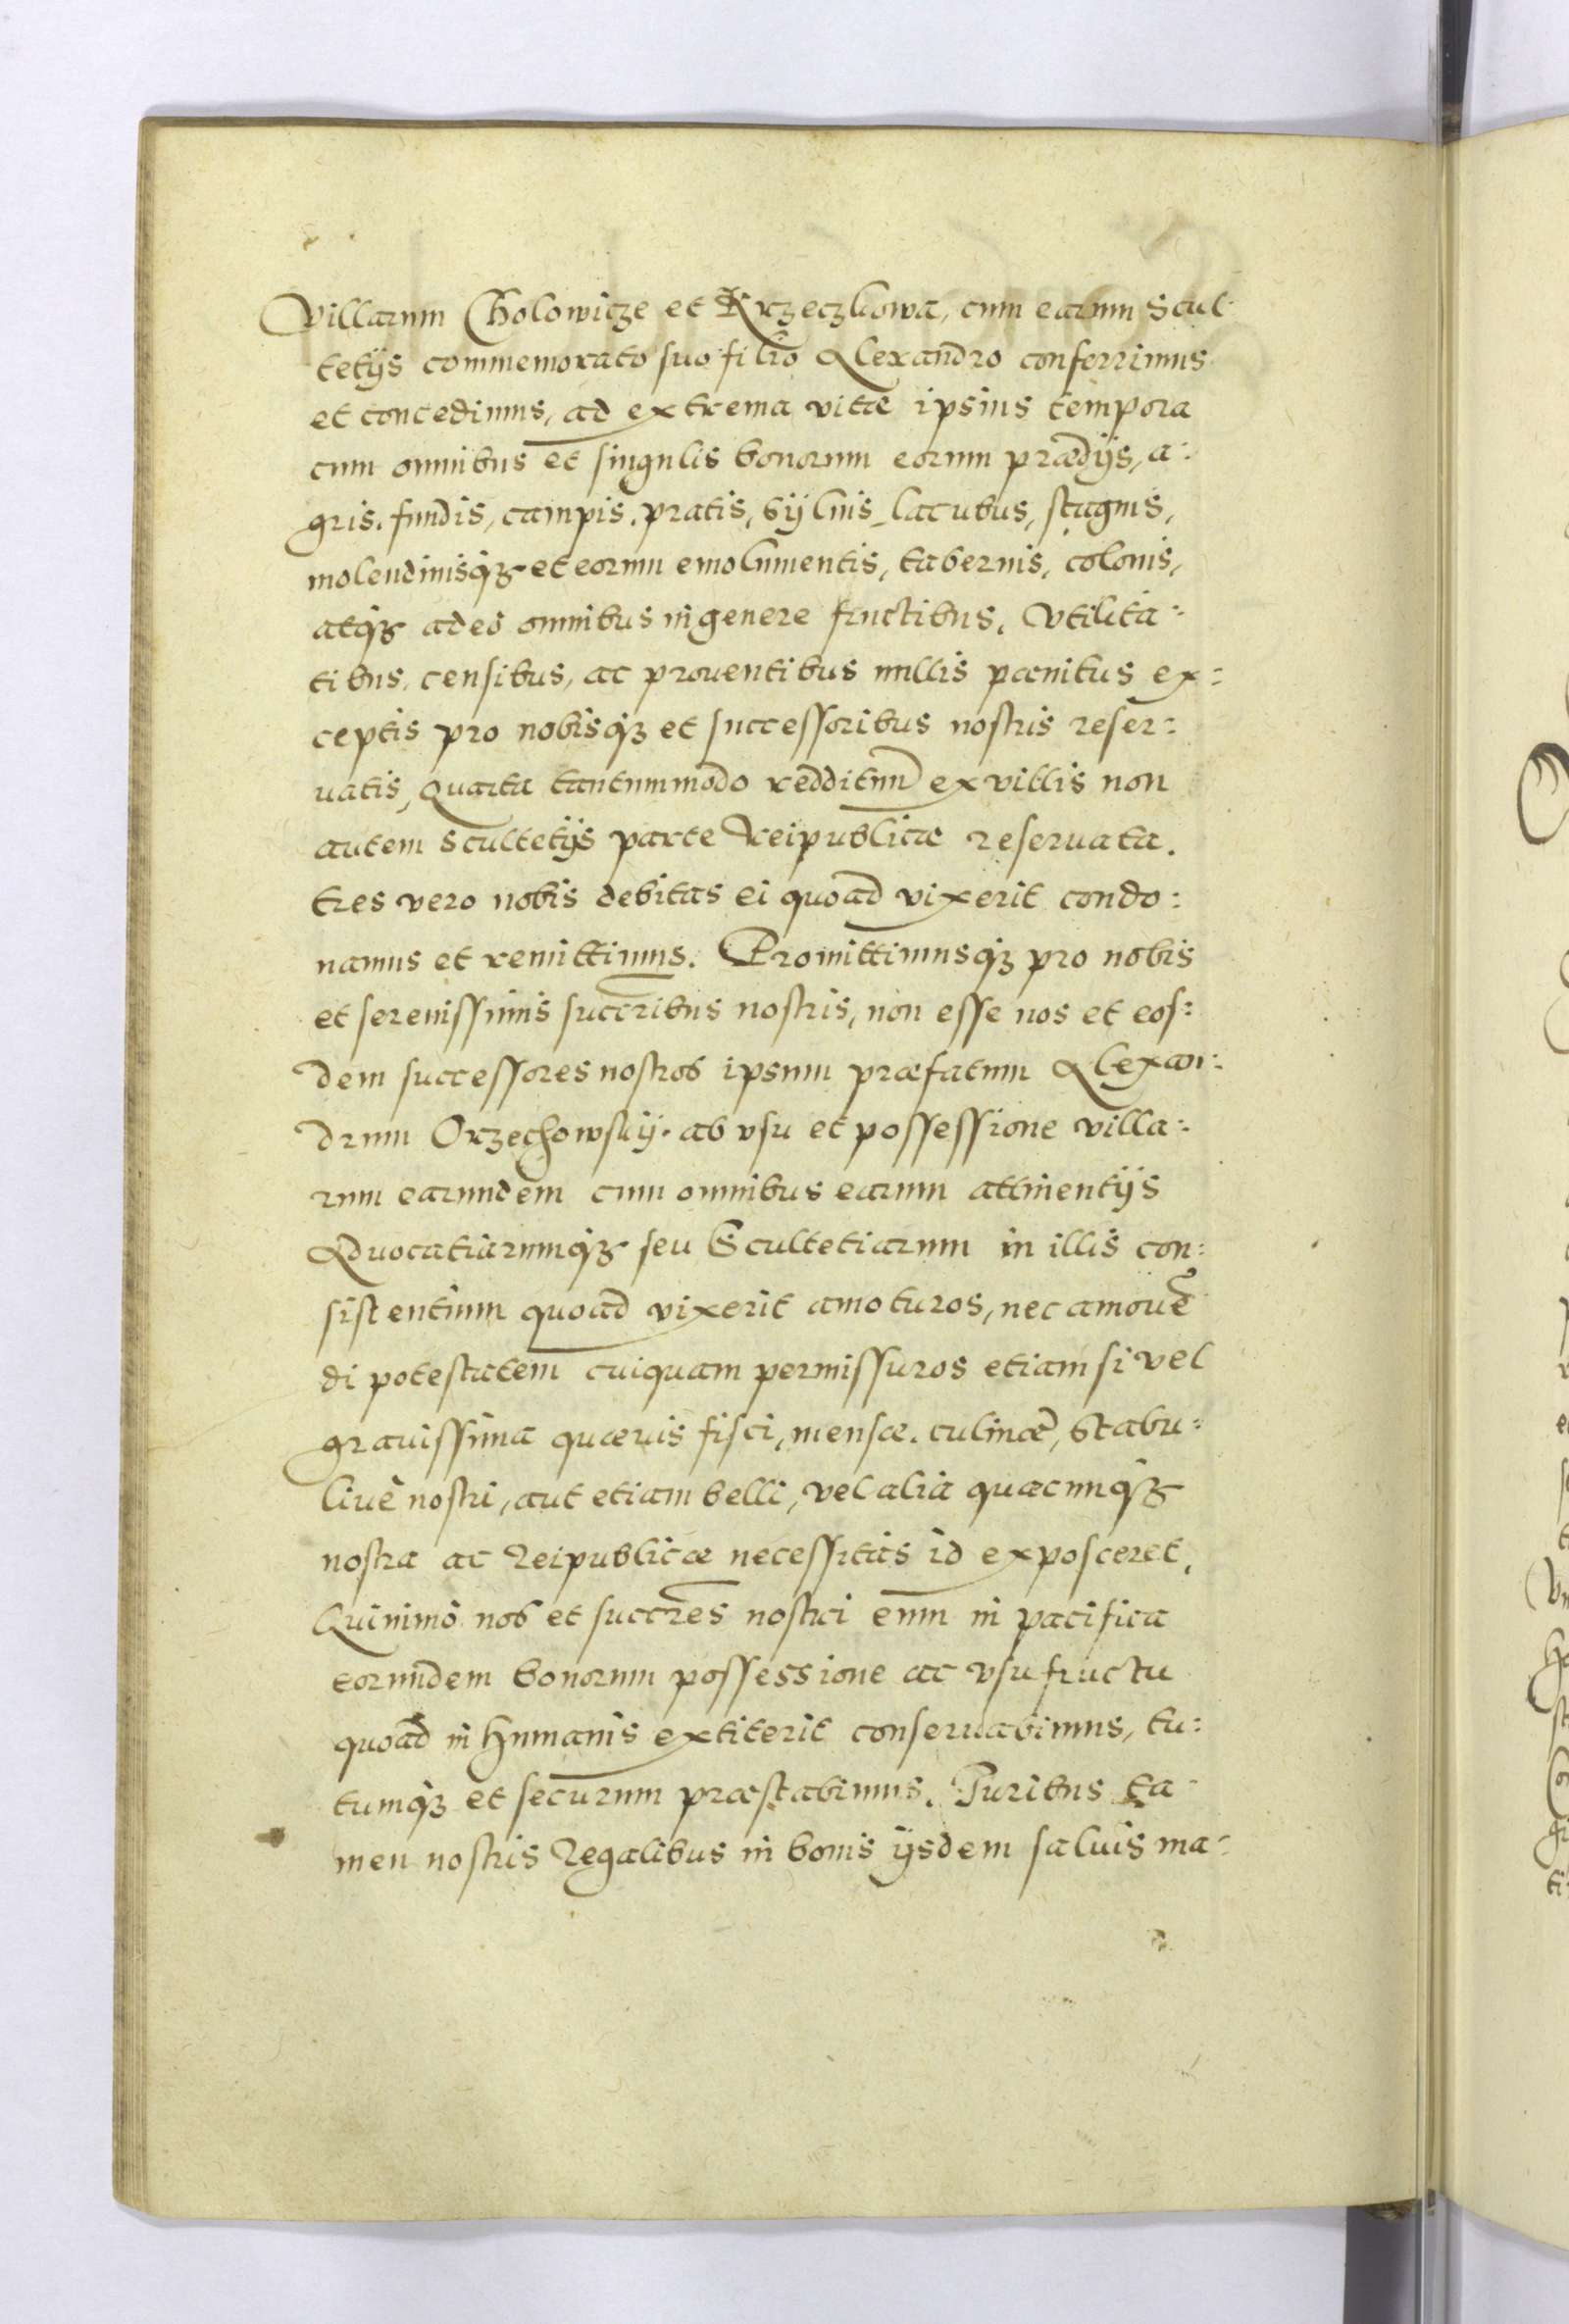 Villarum Cholowicze et Krzeczkowa, cum earum Scul-
tetijs commemorato suo filio Alexandro conferrimus
et concedimus, ad extrema vitæ ipsius tempora
cum omnibus et singulis bonorum eorum prædijs, a:
gris, fundis, campis, pratis, sijluis, lacubus, stagnis,
molendinisqꝫ et eorum emolumentis, tabernis, colonis,
atqꝫ adeo omnibus in genere fructibus, Vtilita:
tibus, censibus, ac prouentibus nullis pænitus ex:
ceptis pro nobisqꝫ et successoribus nostris reser:
uatis, Quarta tantummodo reddituum ex villis non
autem scultetijs parte Reipublicæ reseruata.
tres vero nobis debitas ei quoad vixerit condo:
namus et remittimus. Promittimusqꝫ pro nobis
et serenissimis succribus nostris, non esse nos et eos:
dem successores nostros ipsum præfatum Alexan:
drum Orzechowskij ab vsu et possessione villa:
rum earundem cum omnibus earum attinentijs
Aduocatiarumqꝫ seu Scultetiarum in illis con:
sistentium quoad vixerit amoturos, nec amouē
di potestatem cuiquam permissuros etiam si vel
grauissima quæuis fisci, mensæ, culinæ, stabu:
liue nostri, aut etiam belli, vel alia quæcunqꝫ
nostra ac Reipublicæ necessitas id exposceret,
Quinimo nos et succres nostri eum in pacifica
eorundem bonorum possessione ac vsufructu
quoad in humanis extiterit conseruabimus, tu:
tumqꝫ et securum præstabimus. Iuribus ta
men nostris Regalibus in bonis ijsdem saluis ma: